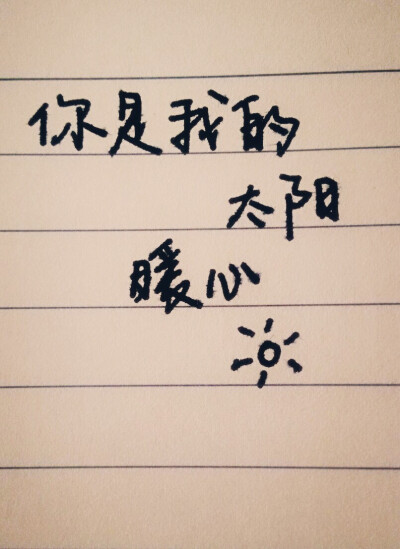 你是我的
太阳
暖心